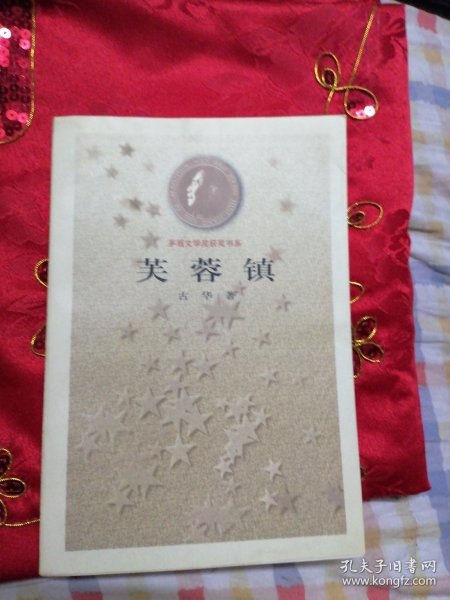 茅盾文学奖获奖书系
芙蓉镇
古华著
孔夫子旧书网
www.kongfz.com